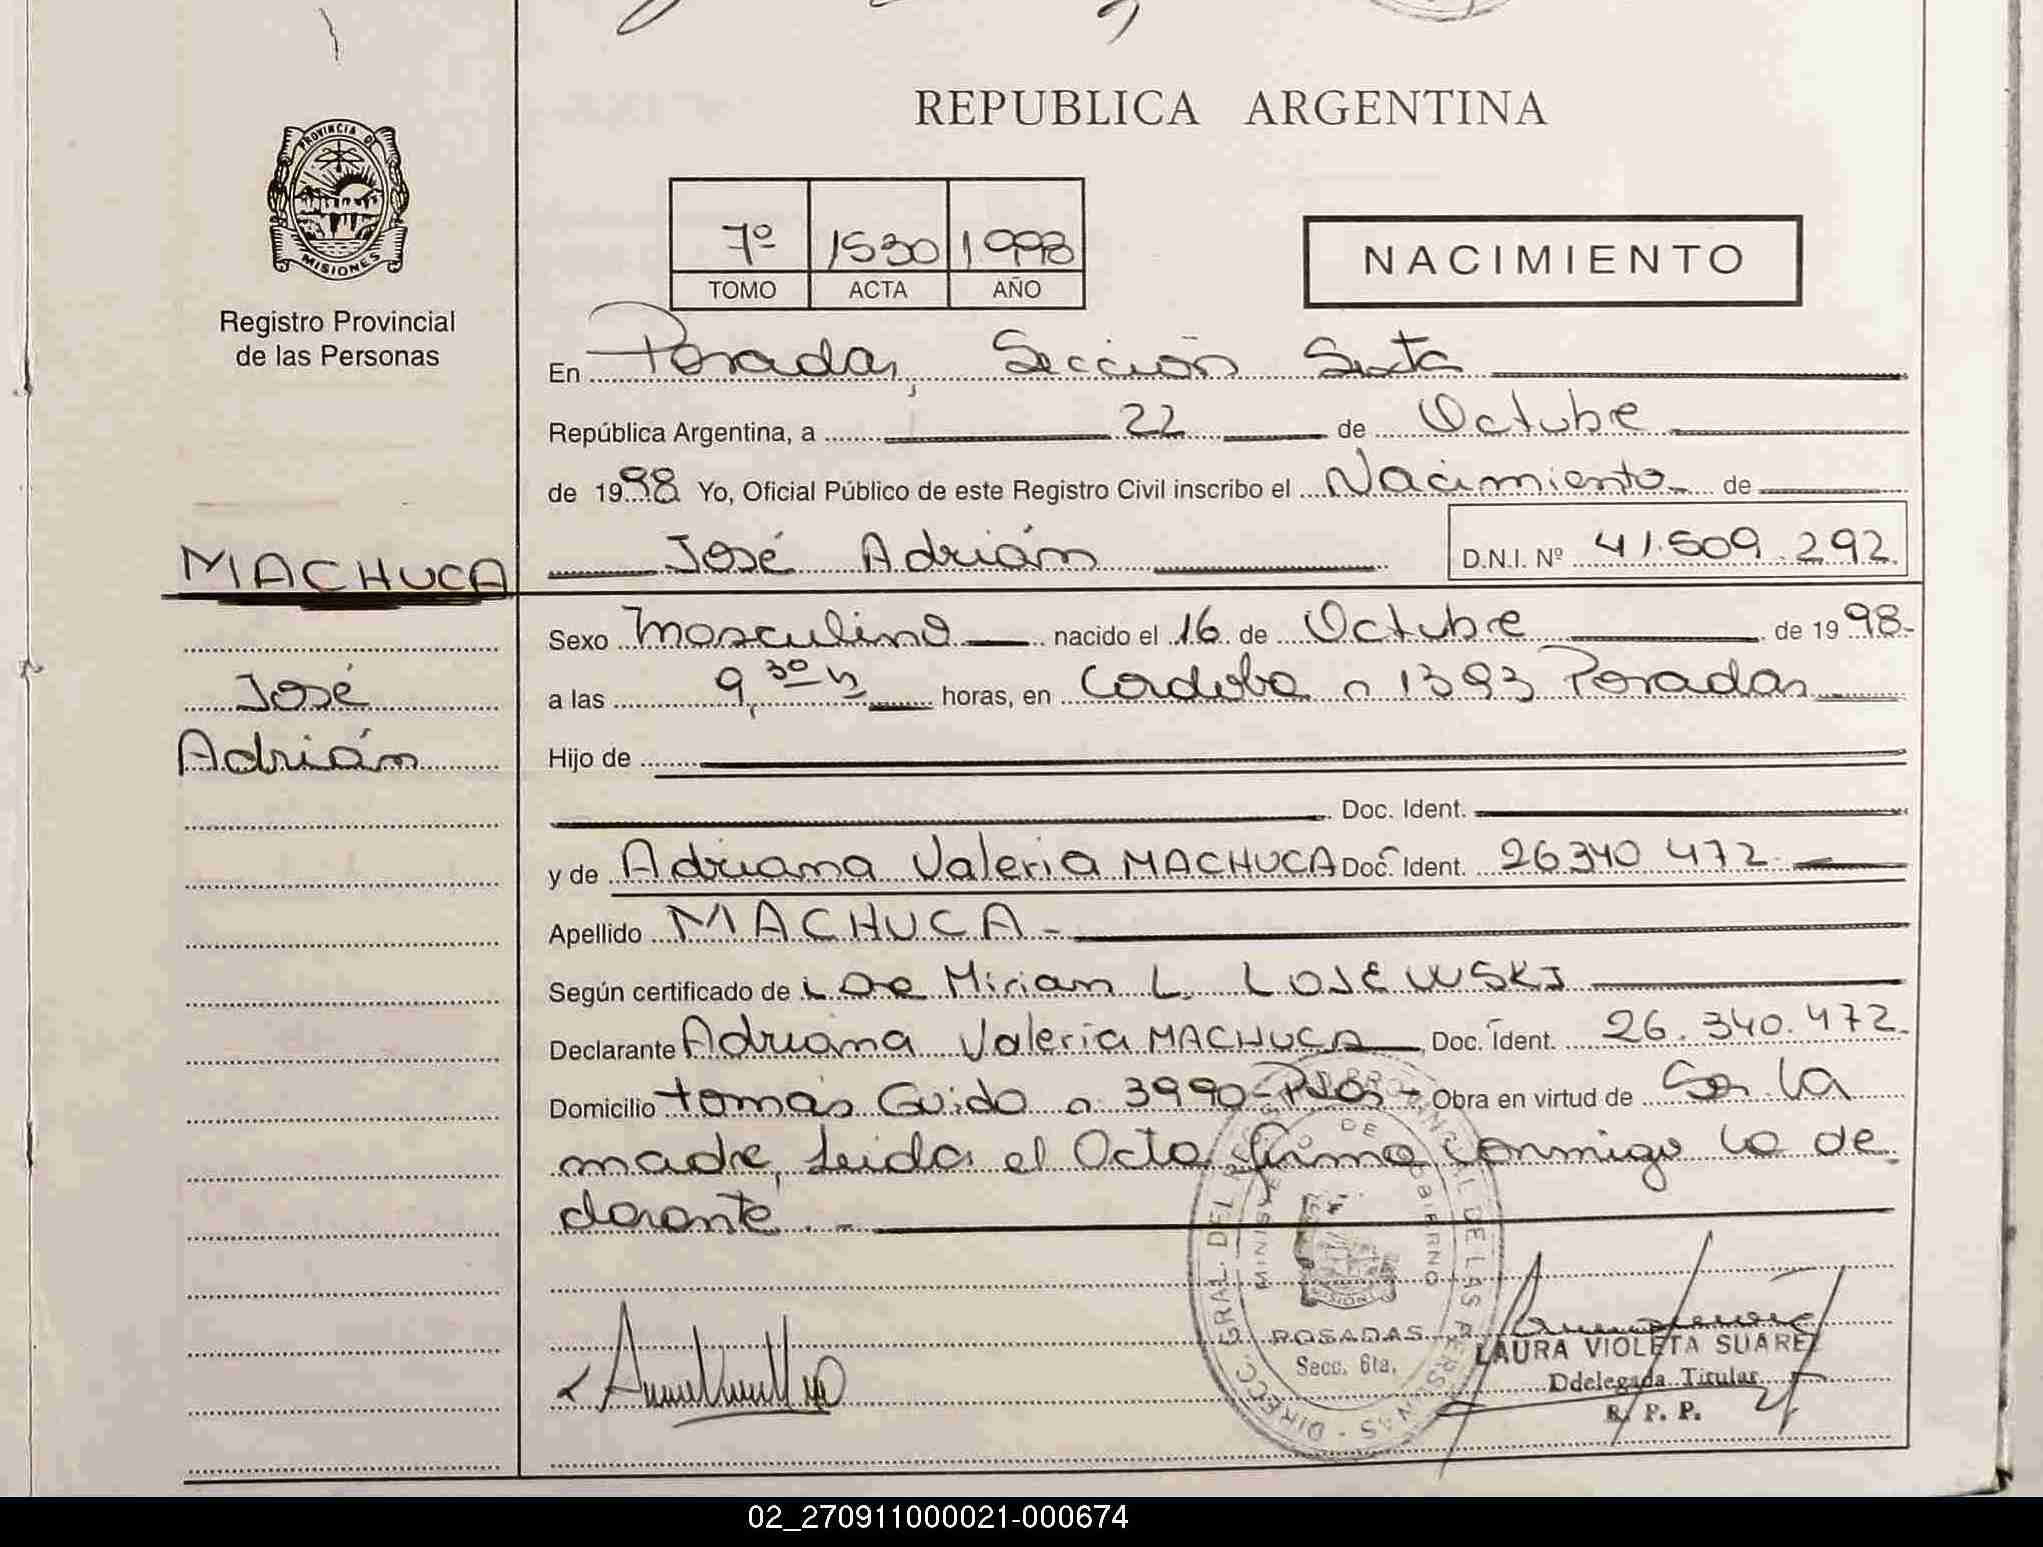 REPUBLICA ARGENTINA
PROVINCIA DE
MISIONES
Registro Provincial
de las Personas
7º 1530 1998
TOMO ACTA AÑO
NACIMIENTO
En Posadas, Sección Sexta
República Argentina, a 22 de Octubre
de 1998 Yo, Oficial Público de este Registro Civil inscribo el Nacimiento de
MACHUCA
José Adrián D.N.I. Nº 41.509.292
José
Adrián
Sexo Masculino nacido el 16 de Octubre de 1998-
a las 9,30 h horas, en Córdoba n 1393 Posadas
Hijo de
Doc. Ident.
y de Adriana Valeria MACHUCA Doc. Ident. 26340472
Apellido MACHUCA -
Según certificado de Mirian L. LOJEWSKI
Declarante Adriana Valeria MACHUCA Doc. Ident. 26.340.472
Domicilio tomás Guido n 3990- Pdas Obra en virtud de Ser la
madre, Leida el Acta, firma conmigo la de
clarante. -
DIRECC. GRAL. DEL REG. PROVINCIAL DE LAS PERSONAS
MINISTERIO DE GOBIERNO
MISIONES
POSADAS
Secc. 6ta.
LAURA VIOLETA SUAREZ
Ddelegada Titular
R. P. P.
02_270911000021-000674